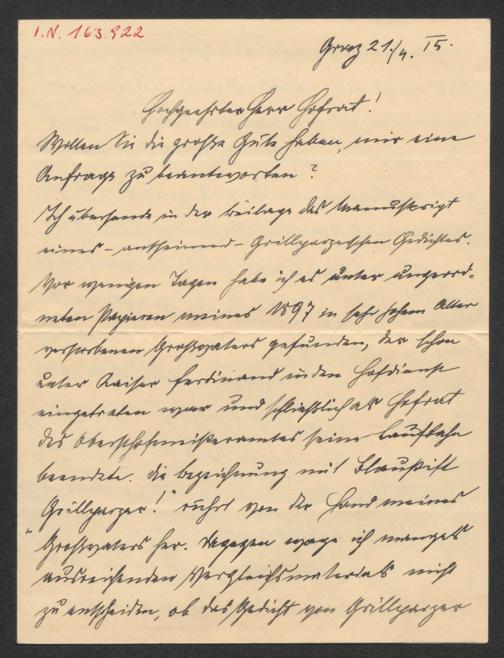 I.N. 163.922
Graz 21./4. 15.
Hochgeehrter Herr Hofrat!
Wollen Sie die große Güte haben, mir eine
Anfrage zu beantworten?
Ich übersende in der Beilage das Manuskript
eines – anscheinend – Grillparzerschen Gedichtes.
Vor wenigen Tagen habe ich es unter ungeord-
neten Papieren meines 1897 in sehr hohem Alter
verstorbenen Großvaters gefunden, der schon
unter Kaiser Ferdinand in den Hofdienst
eingetreten war und schließlich als Hofrat
des Obersthofmeisteramtes seine Laufbahn
beendete. Die Bezeichnung mit Blaustift
„Grillparzer!“ rührt von der Hand meines
Großvaters her. Dagegen wage ich mangels
ausreichenden Vergleichsmaterials nicht
zu entscheiden, ob das Gedicht von Grillparzer